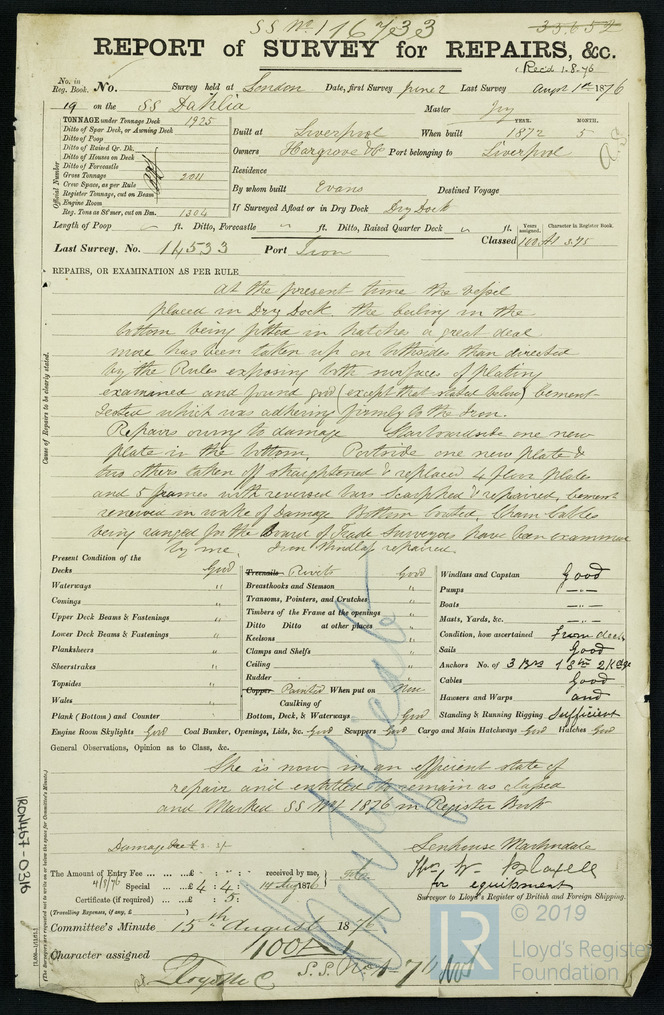 SS No. 1 16733
33652
REPORT of SURVEY for REPAIRS, &c.
Recd 1.8.76
No. in Reg. Book. No. Survey held at London Date, first Survey June 2 Last Survey Augst 1st 1876
19 on the SS Dahlia Master
TONNAGE under Tonnage Deck 1925
Ditto of Spar Deck, or Awning Deck
Ditto of Poop
Ditto of Raised Qr. Dk.
Ditto of Houses on Deck
Ditto of Forecastle
Gross Tonnage 2011
Crew Space, as per Rule
Register Tonnage, cut on Beam
Engine Room
Reg. Tons as St'mer, cut on Bm. 1304
Official Number
Built at Liverpool When built YEAR. 1872 MONTH. 5
Owners Hargrove &C Port belonging to Liverpool
Residence
By whom built Evans Destined Voyage
If Surveyed Afloat or in Dry Dock Dry Dock
Length of Poop " ft. Ditto, Forecastle " ft. Ditto, Raised Quarter Deck " ft.
Last Survey, No. 14533 Port Iron Classed Years assigned. 100 A1 Character in Register Book. 3.75
REPAIRS, OR EXAMINATION AS PER RULE
Cause of Repairs to be clearly stated.
At the present time the vessel
placed in Dry Dock. the ceiling in the
bottom being fitted in hatches a great deal
more has been taken up on bothsides than directed
by the Rules exposing both surfaces of plating
examined and found good (except that stated below) Cement
tested which was adhering firmly to the Iron.
Repairs owing to damage Starboardside one new
plate in the bottom, Portside one new plate &
two others taken off straightened & replaced 4 floor plates
and 5 frames with reversed bars scarphed & repaired, cement
renewed in wake of Damage Bottom coated Chain Cables
being ranged for the Board of Trade Surveyors have been examined
by me. Iron Windlass repaired.
Present Condition of the
Decks Good
Waterways "
Comings "
Upper Deck Beams & Fastenings "
Lower Deck Beams & Fastenings "
Planksheers "
Sheerstrakes "
Topsides "
Wales "
Plank (Bottom) and Counter "
Treenails Rivets Good
Breasthooks and Stemson "
Transoms, Pointers, and Crutches "
Timbers of the Frame at the openings "
Ditto Ditto at other places "
Keelsons "
Clamps and Shelfs "
Ceiling "
Rudder "
Copper Painted When put on Now
Caulking of
Bottom, Deck, & Waterways Good
Windlass and Capstan Good
Pumps —"—
Boats —"—
Masts, Yards, &c. —"—
Condition, how ascertained From deck
Sails Good
Anchors No. of 3 Brs 1 Stm 2 Kedge
Cables Good
Hawsers and Warps and
Standing & Running Rigging Sufficient
Engine Room Skylights Good Coal Bunker, Openings, Lids, &c. Good Scuppers Good Cargo and Main Hatchways Good Hatches Good
General Observations, Opinion as to Class, &c.
She is now in an efficient state of
repair and entitled to remain as classed
and Marked SS No 1 1876 in Register Book
Damage fee £
Senhouse Martindale
The Amount of Entry Fee ... £ : : received by me,
4/8/76 Special ... £ 4 : 4 : 14 Augt 1876
Certificate (if required) ... £ : 5 :
(Travelling Expenses, if any, £ )
Thos W Bloxell
for equipment
Surveyor to Lloyd's Register of British and Foreign Shipping.
Committee's Minute 15th August 1876
Character assigned 100 A1
S.S. No 1-76
IRON457-0316
© 2019
LR
Lloyd's Register
Foundation